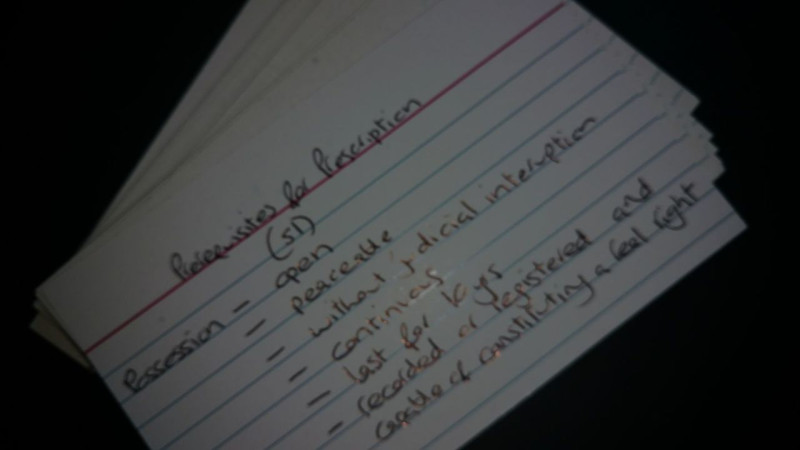 Prerequisites for Prescription
(S1)
Possession - open
- peaceable
- without judicial interruption
- continuous
- last for 10 yrs
- recorded or registered and
capable of constituting a real right